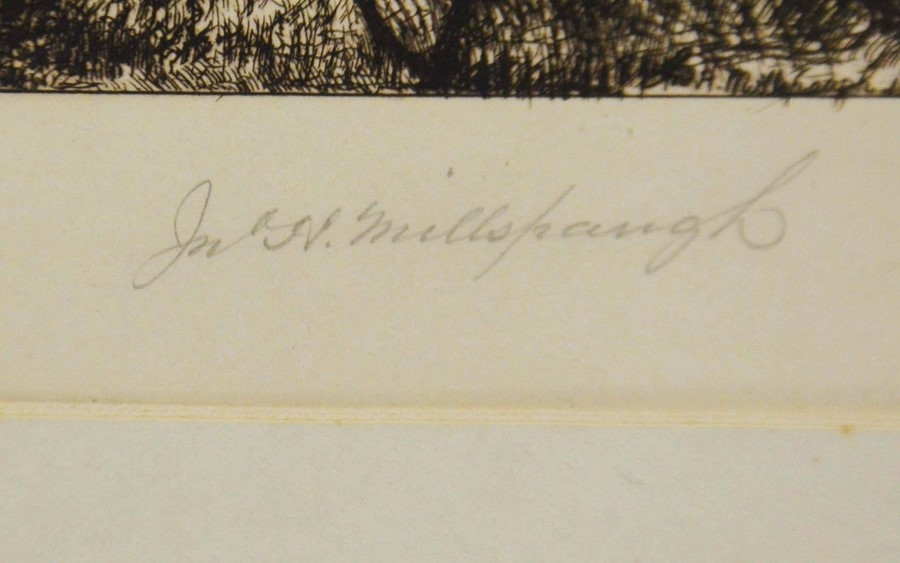 Jno H. Millspaugh